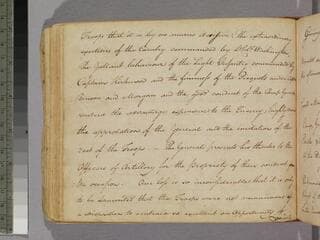 Troops that it is by no means decisive; the extraordinary
exertions of the Cavalry commanded by Washington
The gallant behaviour of the Light Infantry commanded by
Captain Kirkwood and the firmness of the Pickquets under
Benson and Morgan and the good conduct of the Camp Guards
rendered the advantage expensive to the Enemy, highly
the approbation of the General and the imitation of the
rest of the Troops — The General presents his thanks to the
Officers of Artillery for the Propriety of their conduct on
the occasion. Our loss is so inconsiderable that it is only
to be lamented that the Troops were not unanimous
a disposition to embrace so excellent an opportunity of